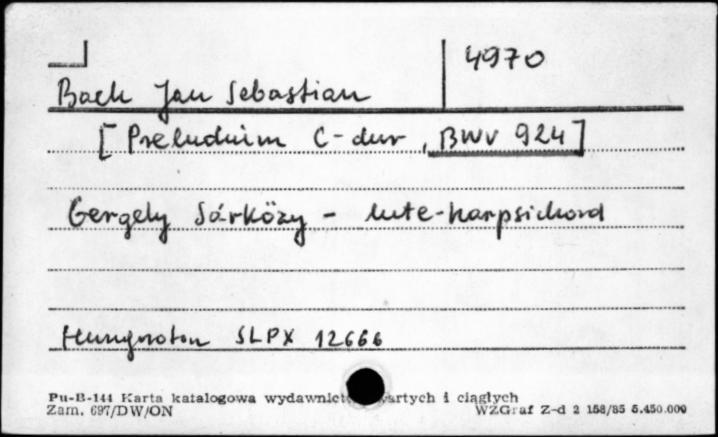 4970
Bach Jan Sebastian
[Preludium C-dur, BWV 924]
Gergely Sárközy - lute-harpsichord
Hungaroton SLPX 12666
Pu-B-144 Karta katalogowa i ciągłych
Zam. 697/DW/ON WZGraf Z-d 2 158/85 5.450.000